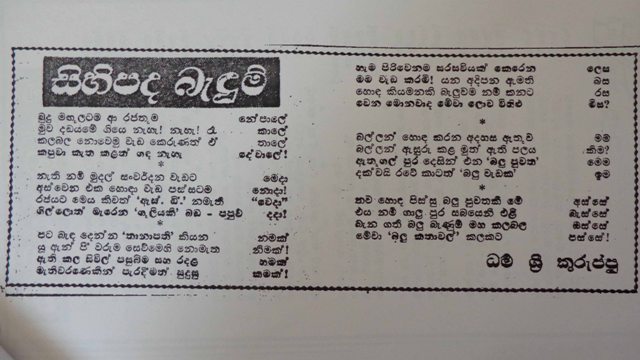 සිහිපද බැඳුම්
බුදු මඟුලටම ආ රජතුම නේපාලේ
මුව දඩයමේ ගියෙ නැහැ! නැහැ! රෑ කාලේ
කලබල නොවෙමු වැඩ කෙරුණත් ඒ තාලේ
කපුවා කැත කළත් ගඳ නැහැ දේවාලේ!
*
නැති නම් මුදල් සංවර්ධන වැඩට මෙදා
අස්වෙන එක හොඳා වැඩ පස්සටම නොදා!
රජයට මෙය කිවත් 'ඇස්. ඩී.' නමැති "වෙදා"
ගිල්ලොත් මැරෙන 'ගුලියකි' බඩ - පපුව දදා!
*
පට බැඳ දෙන්න 'තානාපති' කියන නමක්
යූ ඇන් පී' වරුම සෙව්මෙහි නොමැත නිමක්!
ඇති කල සිවිල් පසුබිම සහ රදළ ගමක්
මැතිවරණෙකින් පැරදීමත් සුදුසු කමක්!
හැම පිරිවෙනම සරසවියක් කෙරෙන ලෙස
මම වැඩ කරමි! යන අදිපන ඇමති බස
හොඳ කියමනකි බැලුවම නම් කනට රස
වෙන මොනවාද මේවා ලොව විහිළු මිස?
*
බල්ලන් හොඳ කරන අදහස ඇතුව මම
බල්ලන් ඇසුරු කළ මුත් ඇති පලය කිම?
ඇතුගල් පුර දෙසින් එන 'බලු පුවත' මෙම
දක්වයි රටේ කාටත් 'බලු වැඩක' ඉම
*
තව හොඳ පිස්සු බලු පුවතකි මේ අස්සේ
එය නම් ගාලු පුර සබයෙනි එළි බැස්සේ
බැන ගති බලු බැණුම් මහ කලබල ඔස්සේ
මේවා 'බලු කතාවල්' කලකට පස්සේ!
ධර්ම ශ්‍රී කුරුප්පු